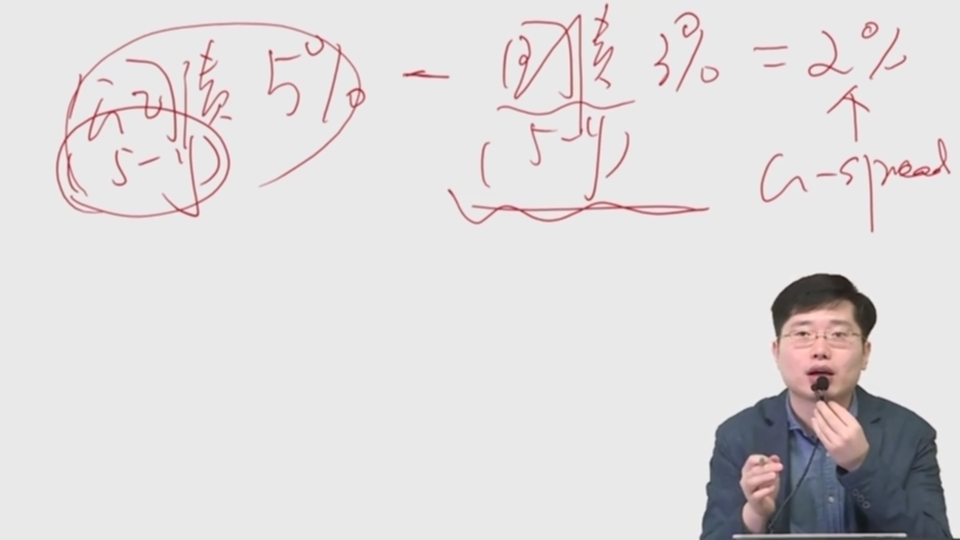 公司债 5% - 国债 3% = 2%
(5-y) (5-y) ↑
G-spread